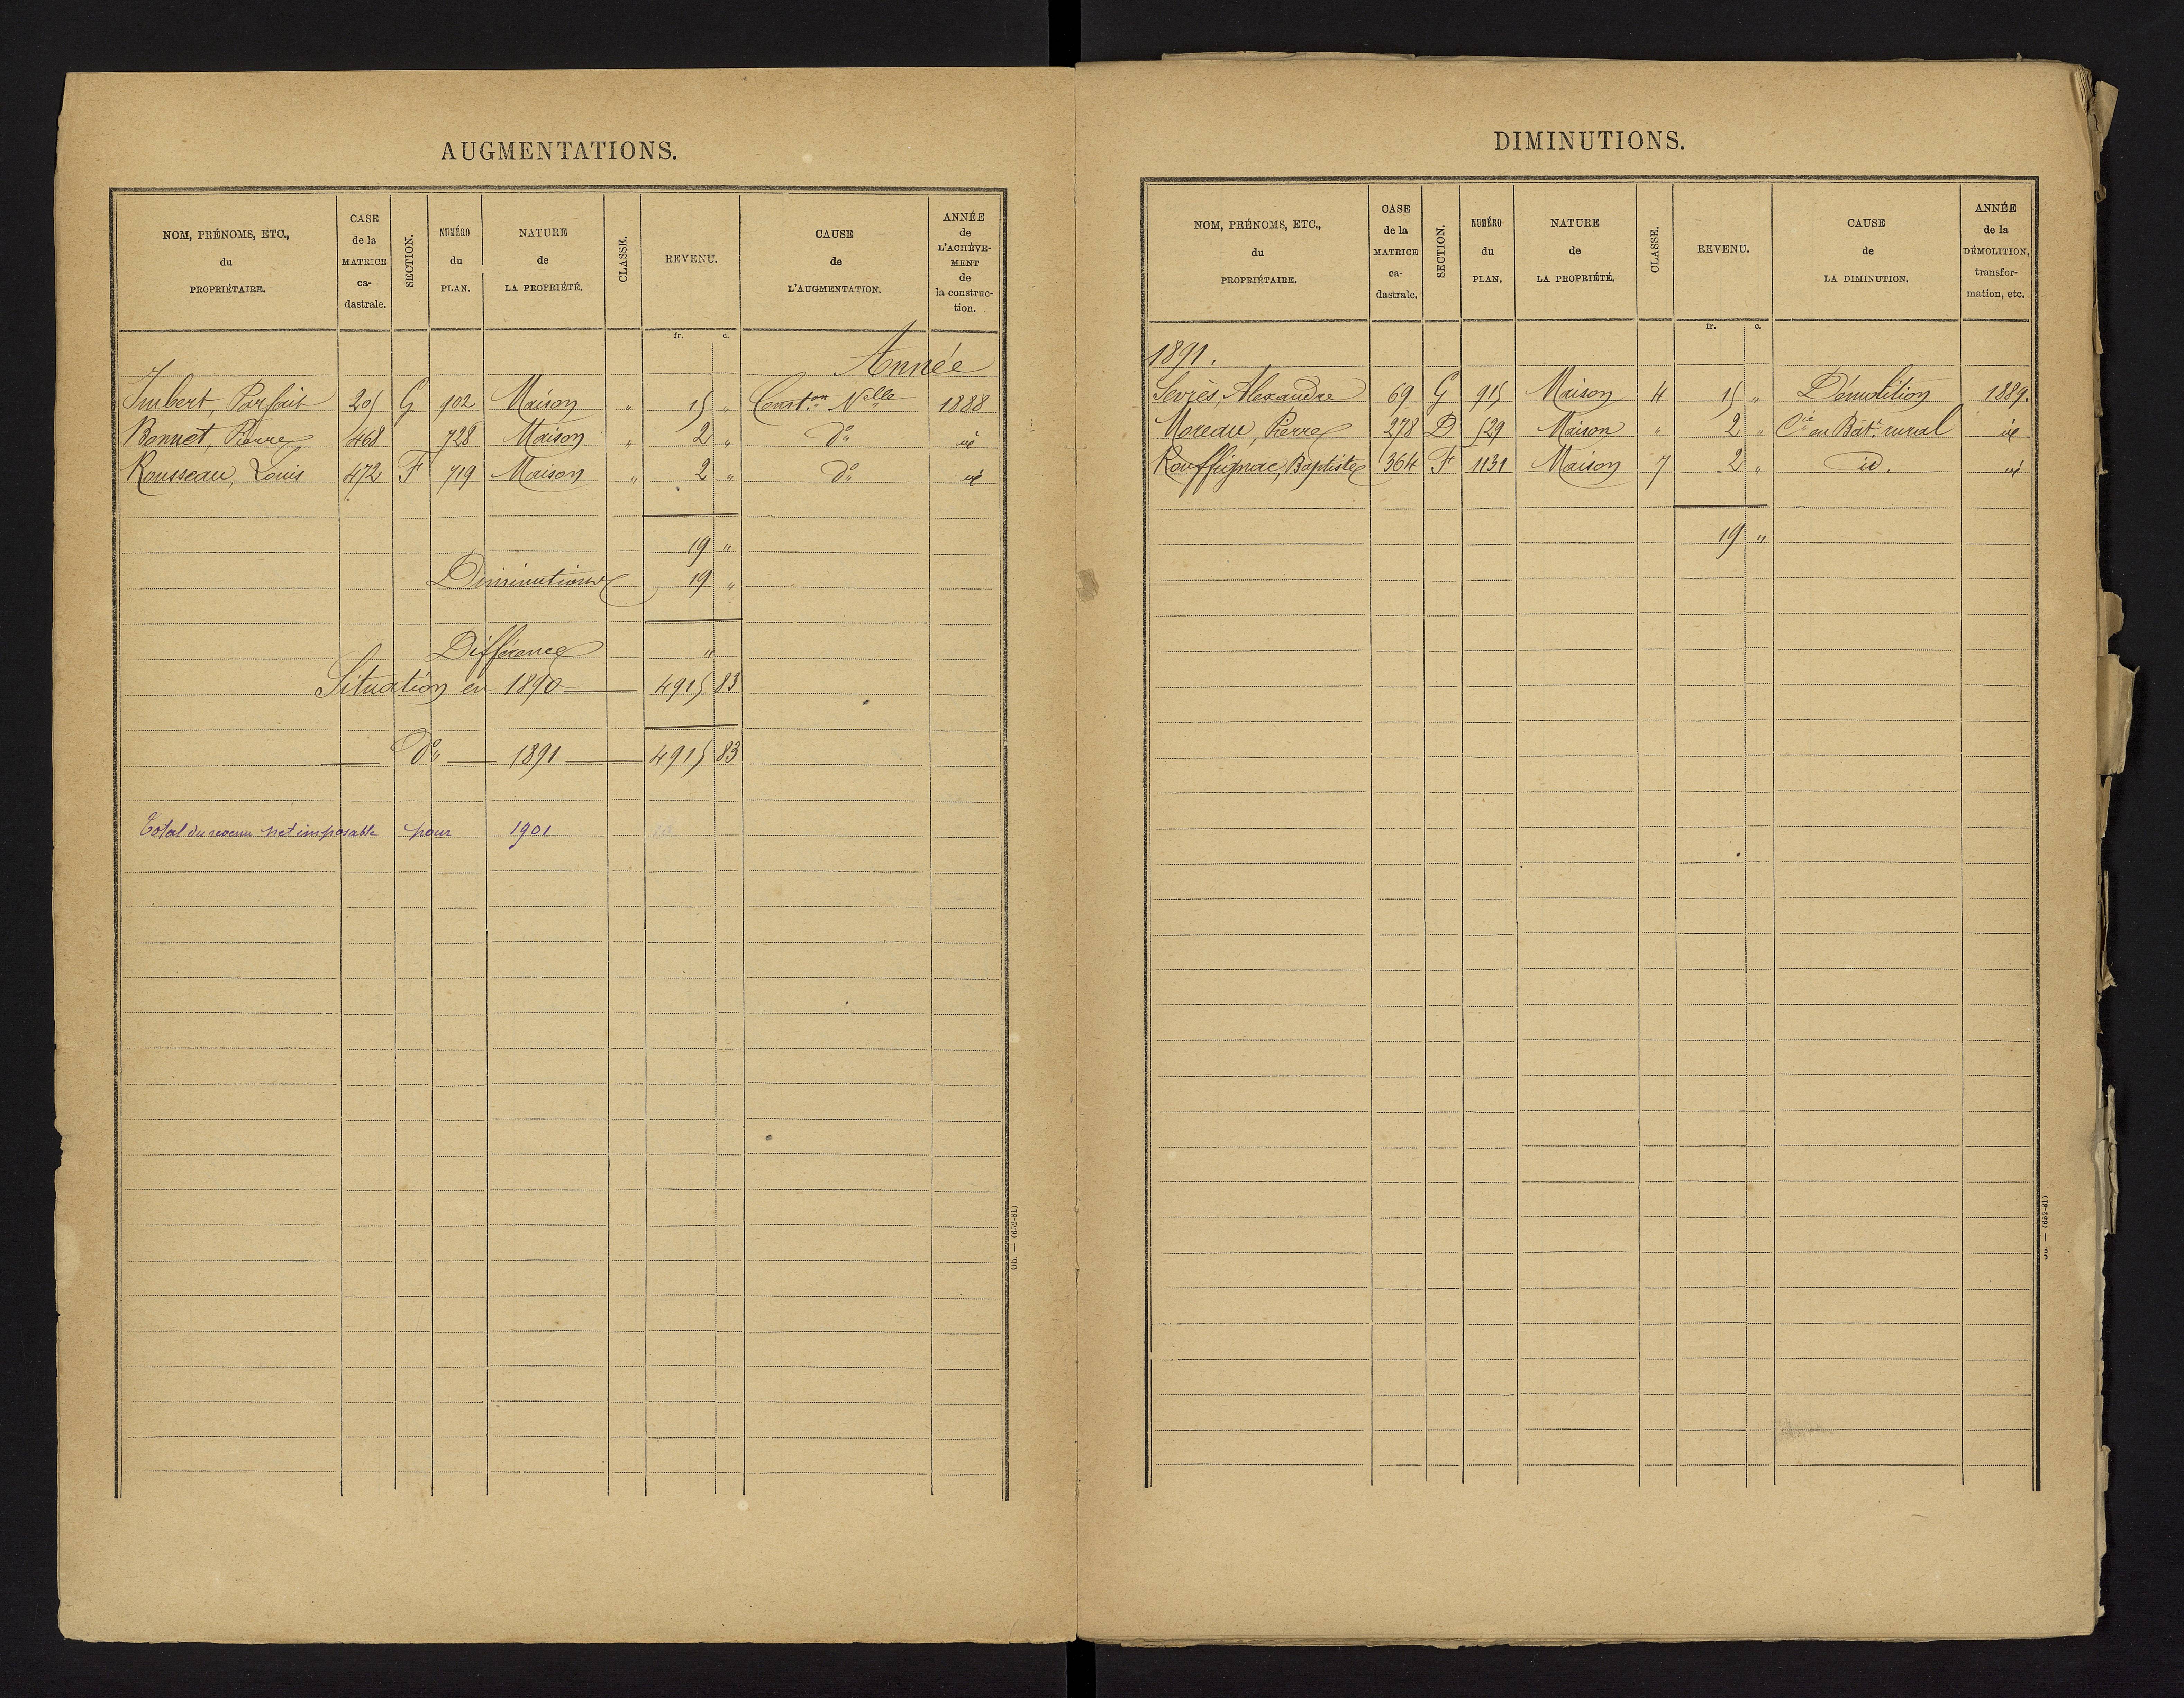 AUGMENTATIONS.
NOM, PRÉNOMS, ETC., du PROPRIÉTAIRE.
CASE de la MATRICE ca-dastrale.
SECTION.
NUMÉRO du PLAN.
NATURE de LA PROPRIÉTÉ.
CLASSE.
REVENU.
CAUSE de L'AUGMENTATION.
ANNÉE de L'ACHÈVE-MENT de la construc-tion.
fr. c.
Année
Imbert, Parfait 205 G 702 Maison " 15 " Const.on Nelle 1888
Bonnet, Pierre 468 728 Maison " 2 " d° id
Rousseau, Louis 472 F 719 Maison " 2 " d° id
19 "
Diminutions 19 "
Différence "
Situation en 1890 4915 83
d° 1891 4915 83
Total du revenu net imposable pour 1901
Ob. — (652-81)
DIMINUTIONS.
NOM, PRÉNOMS, ETC., du PROPRIÉTAIRE.
CASE de la MATRICE ca-dastrale.
SECTION.
NUMÉRO du PLAN.
NATURE de LA PROPRIÉTÉ.
CLASSE.
REVENU.
CAUSE de LA DIMINUTION.
ANNÉE de la DÉMOLITION, transfor-mation, etc.
fr. c.
1891.
Sevrès, Alexandre 69 G 915 Maison 4 15 " Démolition 1889.
Moreau, Pierre 278 D 529 Maison " 2 " Cie en Bât. rural id
Rouffignac, Baptiste 364 F 1131 Maison 7 2 " id. id
19 "
(652-81)